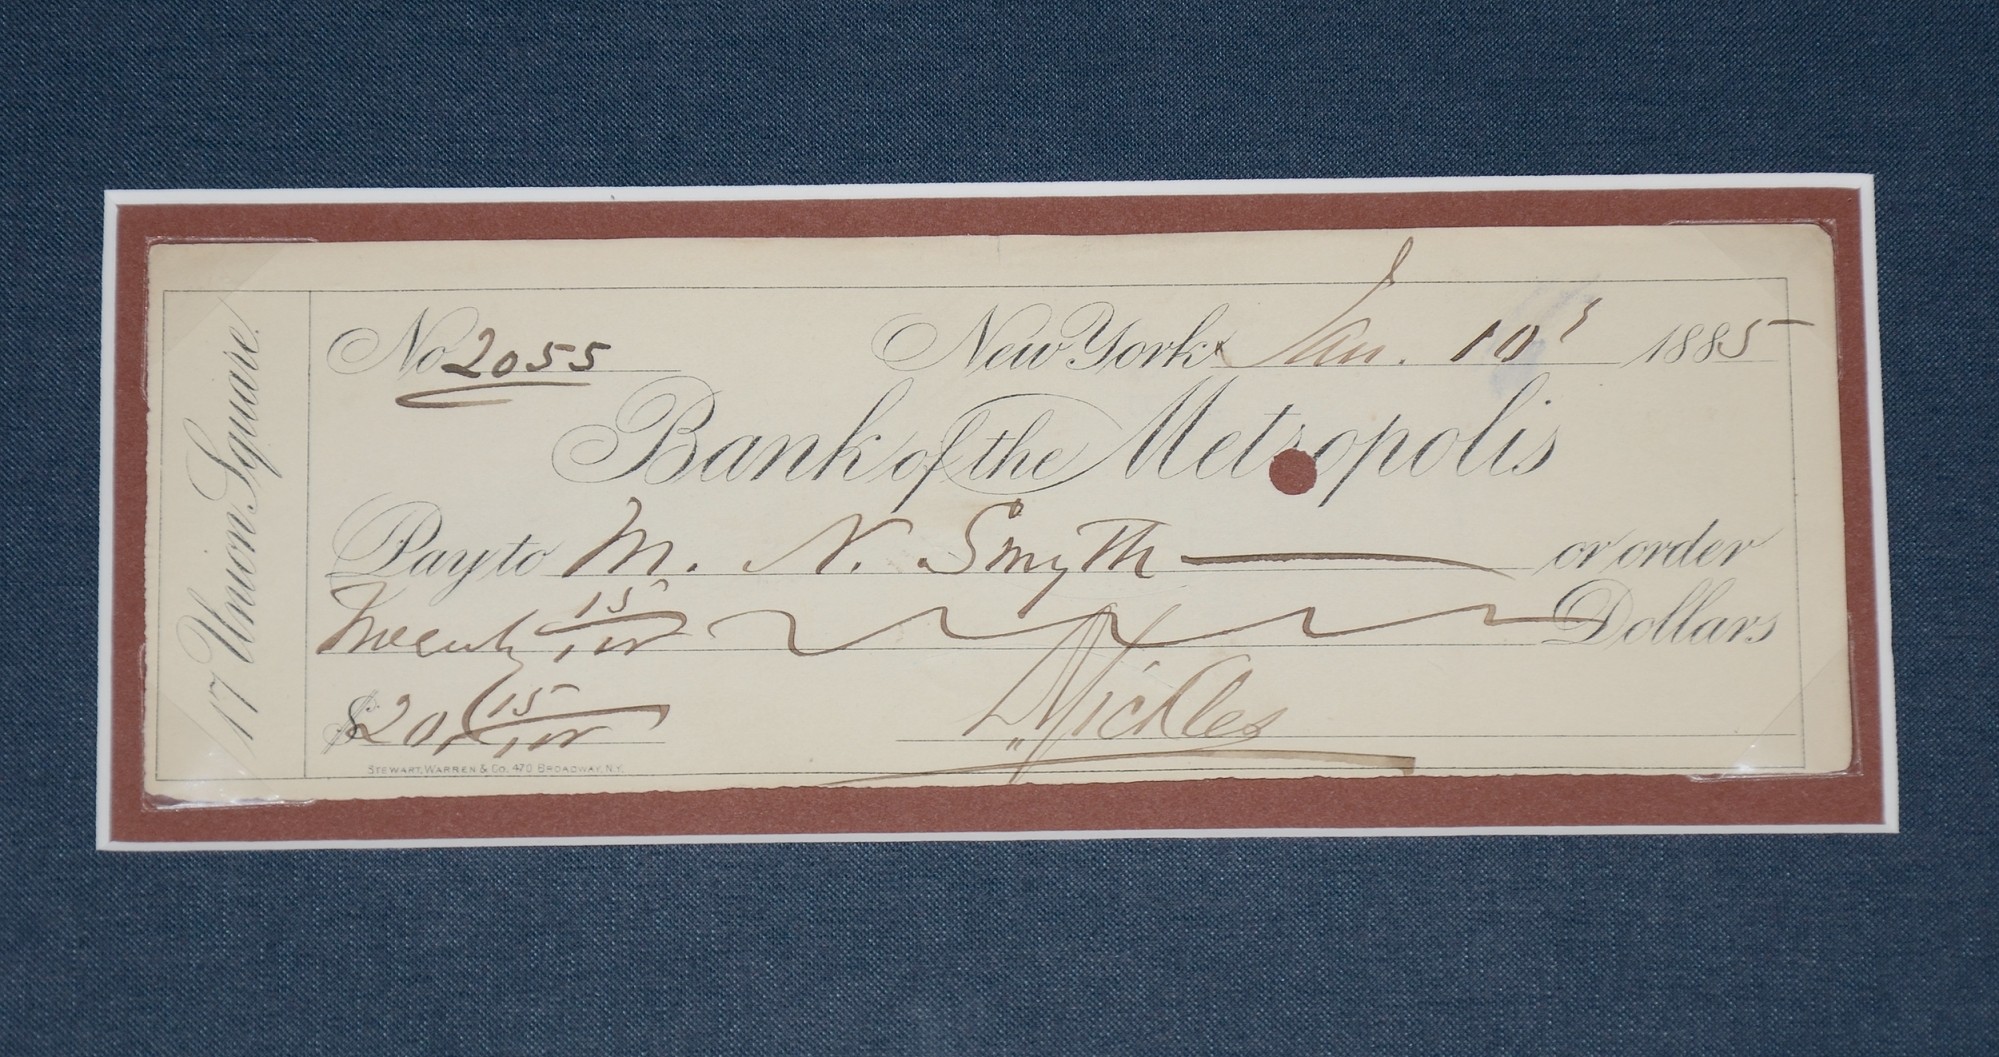 17 Union Square.
No 2055
New York, Jan. 10 1885
Bank of the Metropolis
Pay to M. N. Smyth or order
Twenty 15/100 Dollars
$20, 15/100
STEWART, WARREN & CO. 470 BROADWAY, N.Y.